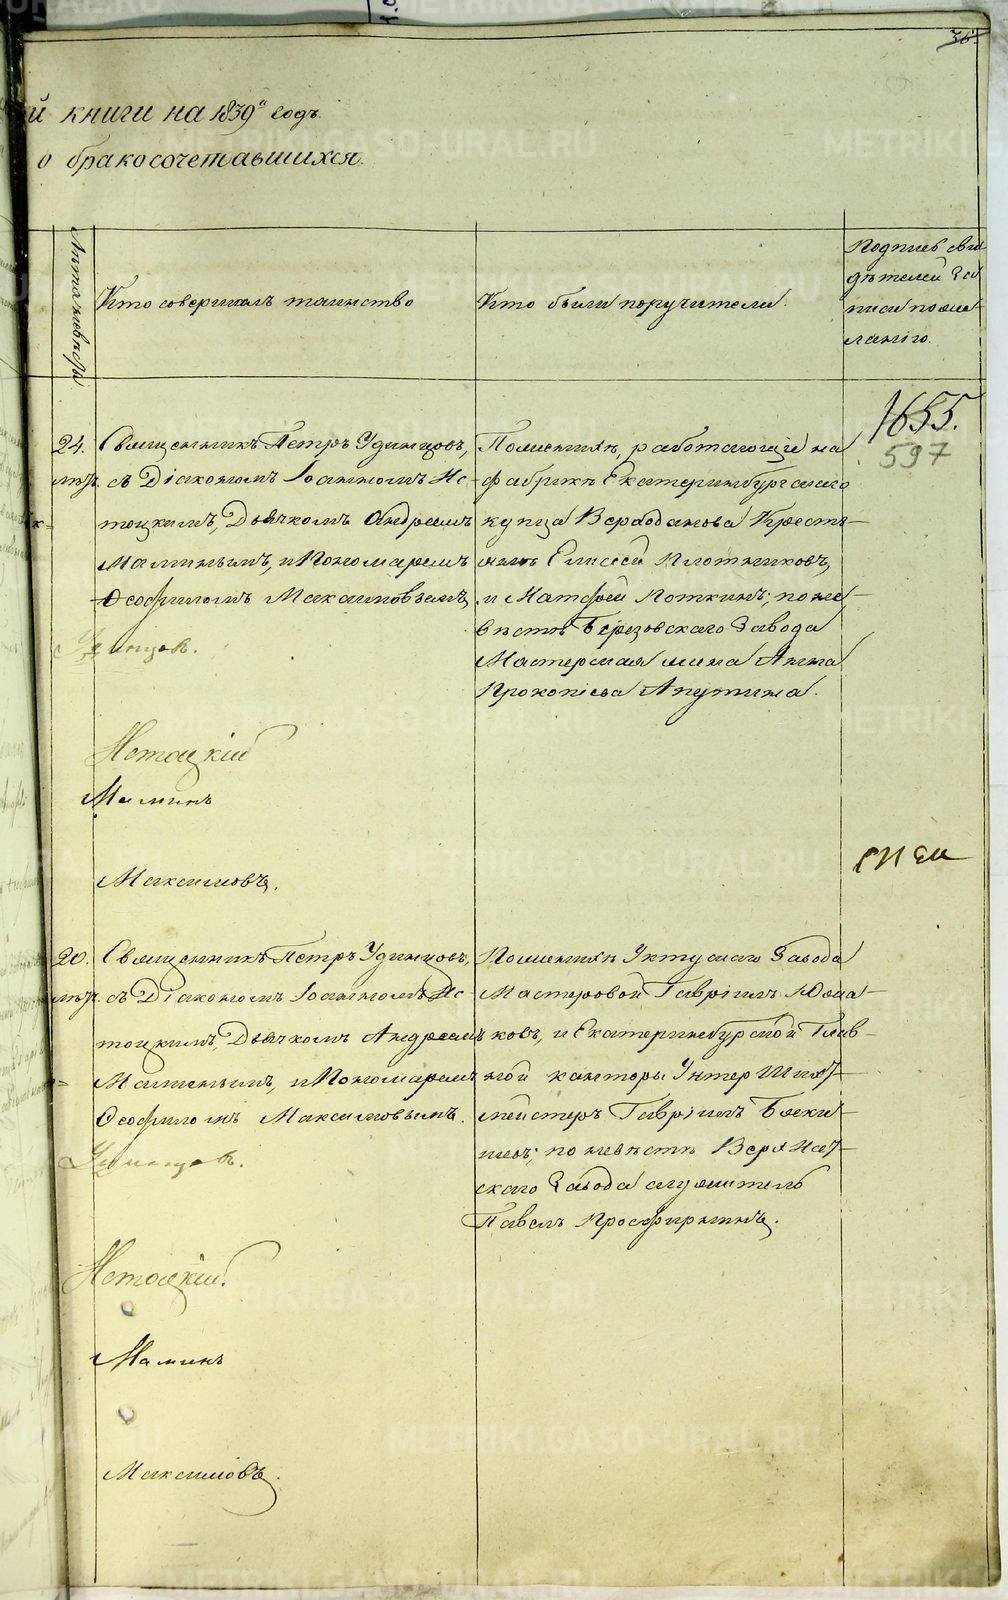 36.
й книги на 1839й годъ.
о бракосочетавшихся.
Лѣта невѣсты
Кто совершалъ таинство
Кто были поручители.
Подпись сви-
дѣтелей За-
писи по же-
ланію.
1655.
597
24.
лѣтъ.
Священникъ Петръ Удинцовъ,
съ Діакономъ Іоанномъ Ис-
тоцкимъ, Дьячкомъ Андреемъ
Маминымъ, и Пономаремъ
Ѳеофиломъ Максимовымъ.
Удинцовъ.
Истоцкій
Маминъ
Максимовъ.
По женихѣ, работающіе на
фабрикѣ Екатеринбургскаго
купца Верходанова Кресть-
янъ Елисей Плотниковъ,
и Матфей Поткинъ; по не-
вѣстѣ Березовскаго Завода
Мастерская жена Анна
Прокопіева Апутина.
20.
лѣтъ.
Священникъ Петръ Удинцовъ,
съ Діакономъ Іоанномъ Ис-
тоцкимъ, Дьячкомъ Андреемъ
Маминымъ, и Пономаремъ
Ѳеофиломъ Максимовымъ.
Удинцовъ.
Истоцкій.
Маминъ
Максимовъ.
По женихѣ Уктускаго Завода
Мастеровой Гавріилъ Юша-
ковъ, и Екатеринбургской Глав-
ной канторы Унтер Шихт-
мейстеръ Гавріилъ
по невѣстѣ Верх Исет-
скаго Завода служитель
Павелъ Просфирнинъ.